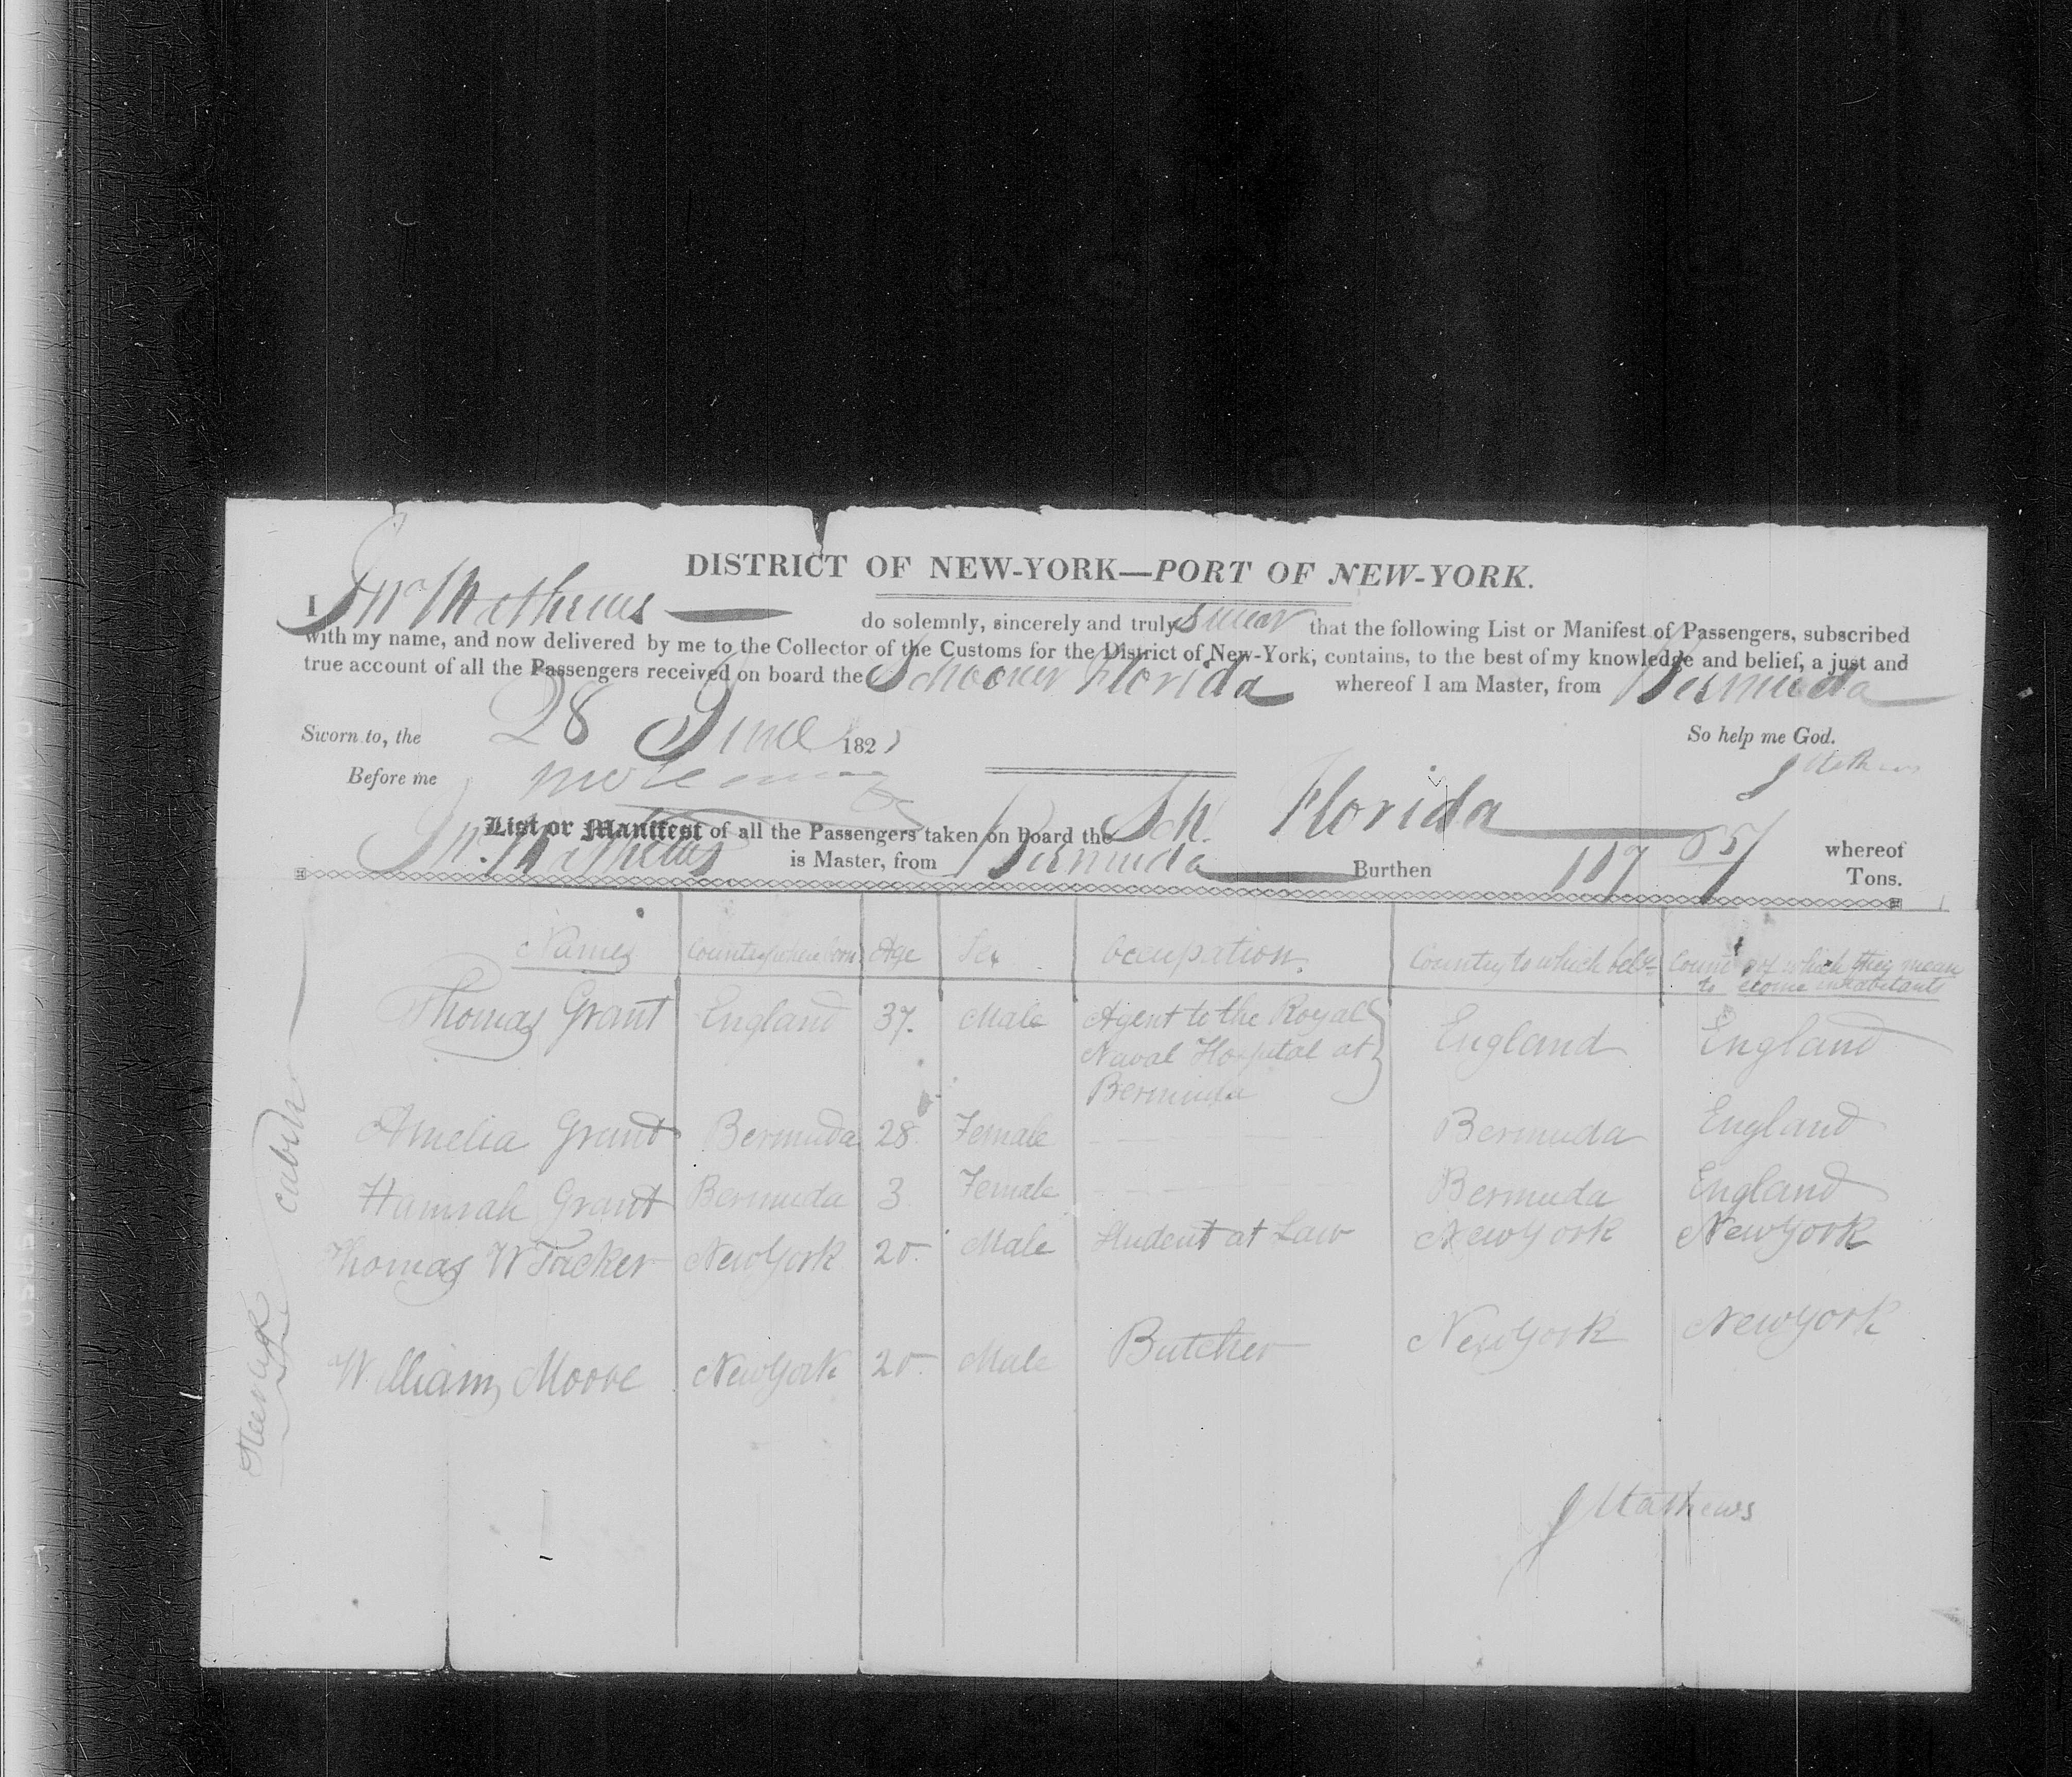 DISTRICT OF NEW-YORK—PORT OF NEW-YORK.
I Jno Mathews do solemnly, sincerely and truly swear that the following List or Manifest of Passengers, subscribed
with my name, and now delivered by me to the Collector of the Customs for the District of New-York, contains, to the best of my knowledge and belief, a just and
true account of all the Passengers received on board the Schooner Florida whereof I am Master, from Bermuda
Sworn to, the 28 June 182 So help me God.
Before me J Mathews
List or Manifest of all the Passengers taken on Board the Sch. Florida whereof
Jno. Mathews is Master, from Bermuda Burthen 117 Tons.
Names Country where born Age Sex Occupation. Country to which belg Country of which they mean
to become inhabitants
Thomas Grant England 37. Male Agent to the Royal England England
Naval Hospital at
Bermuda
Amelia Grant Bermuda 28. Female Bermuda England
Hannah Grant Bermuda 3 Female Bermuda England
Thomas W Tucker New York 20. Male Student at Law New York New York
William Moore New York 20. Male Butcher New York New York
cabin
Steerage
J Mathews